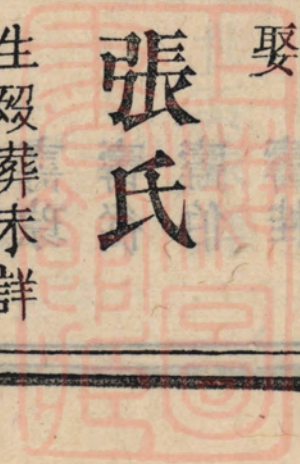 娶
張氏
生殁葬未詳